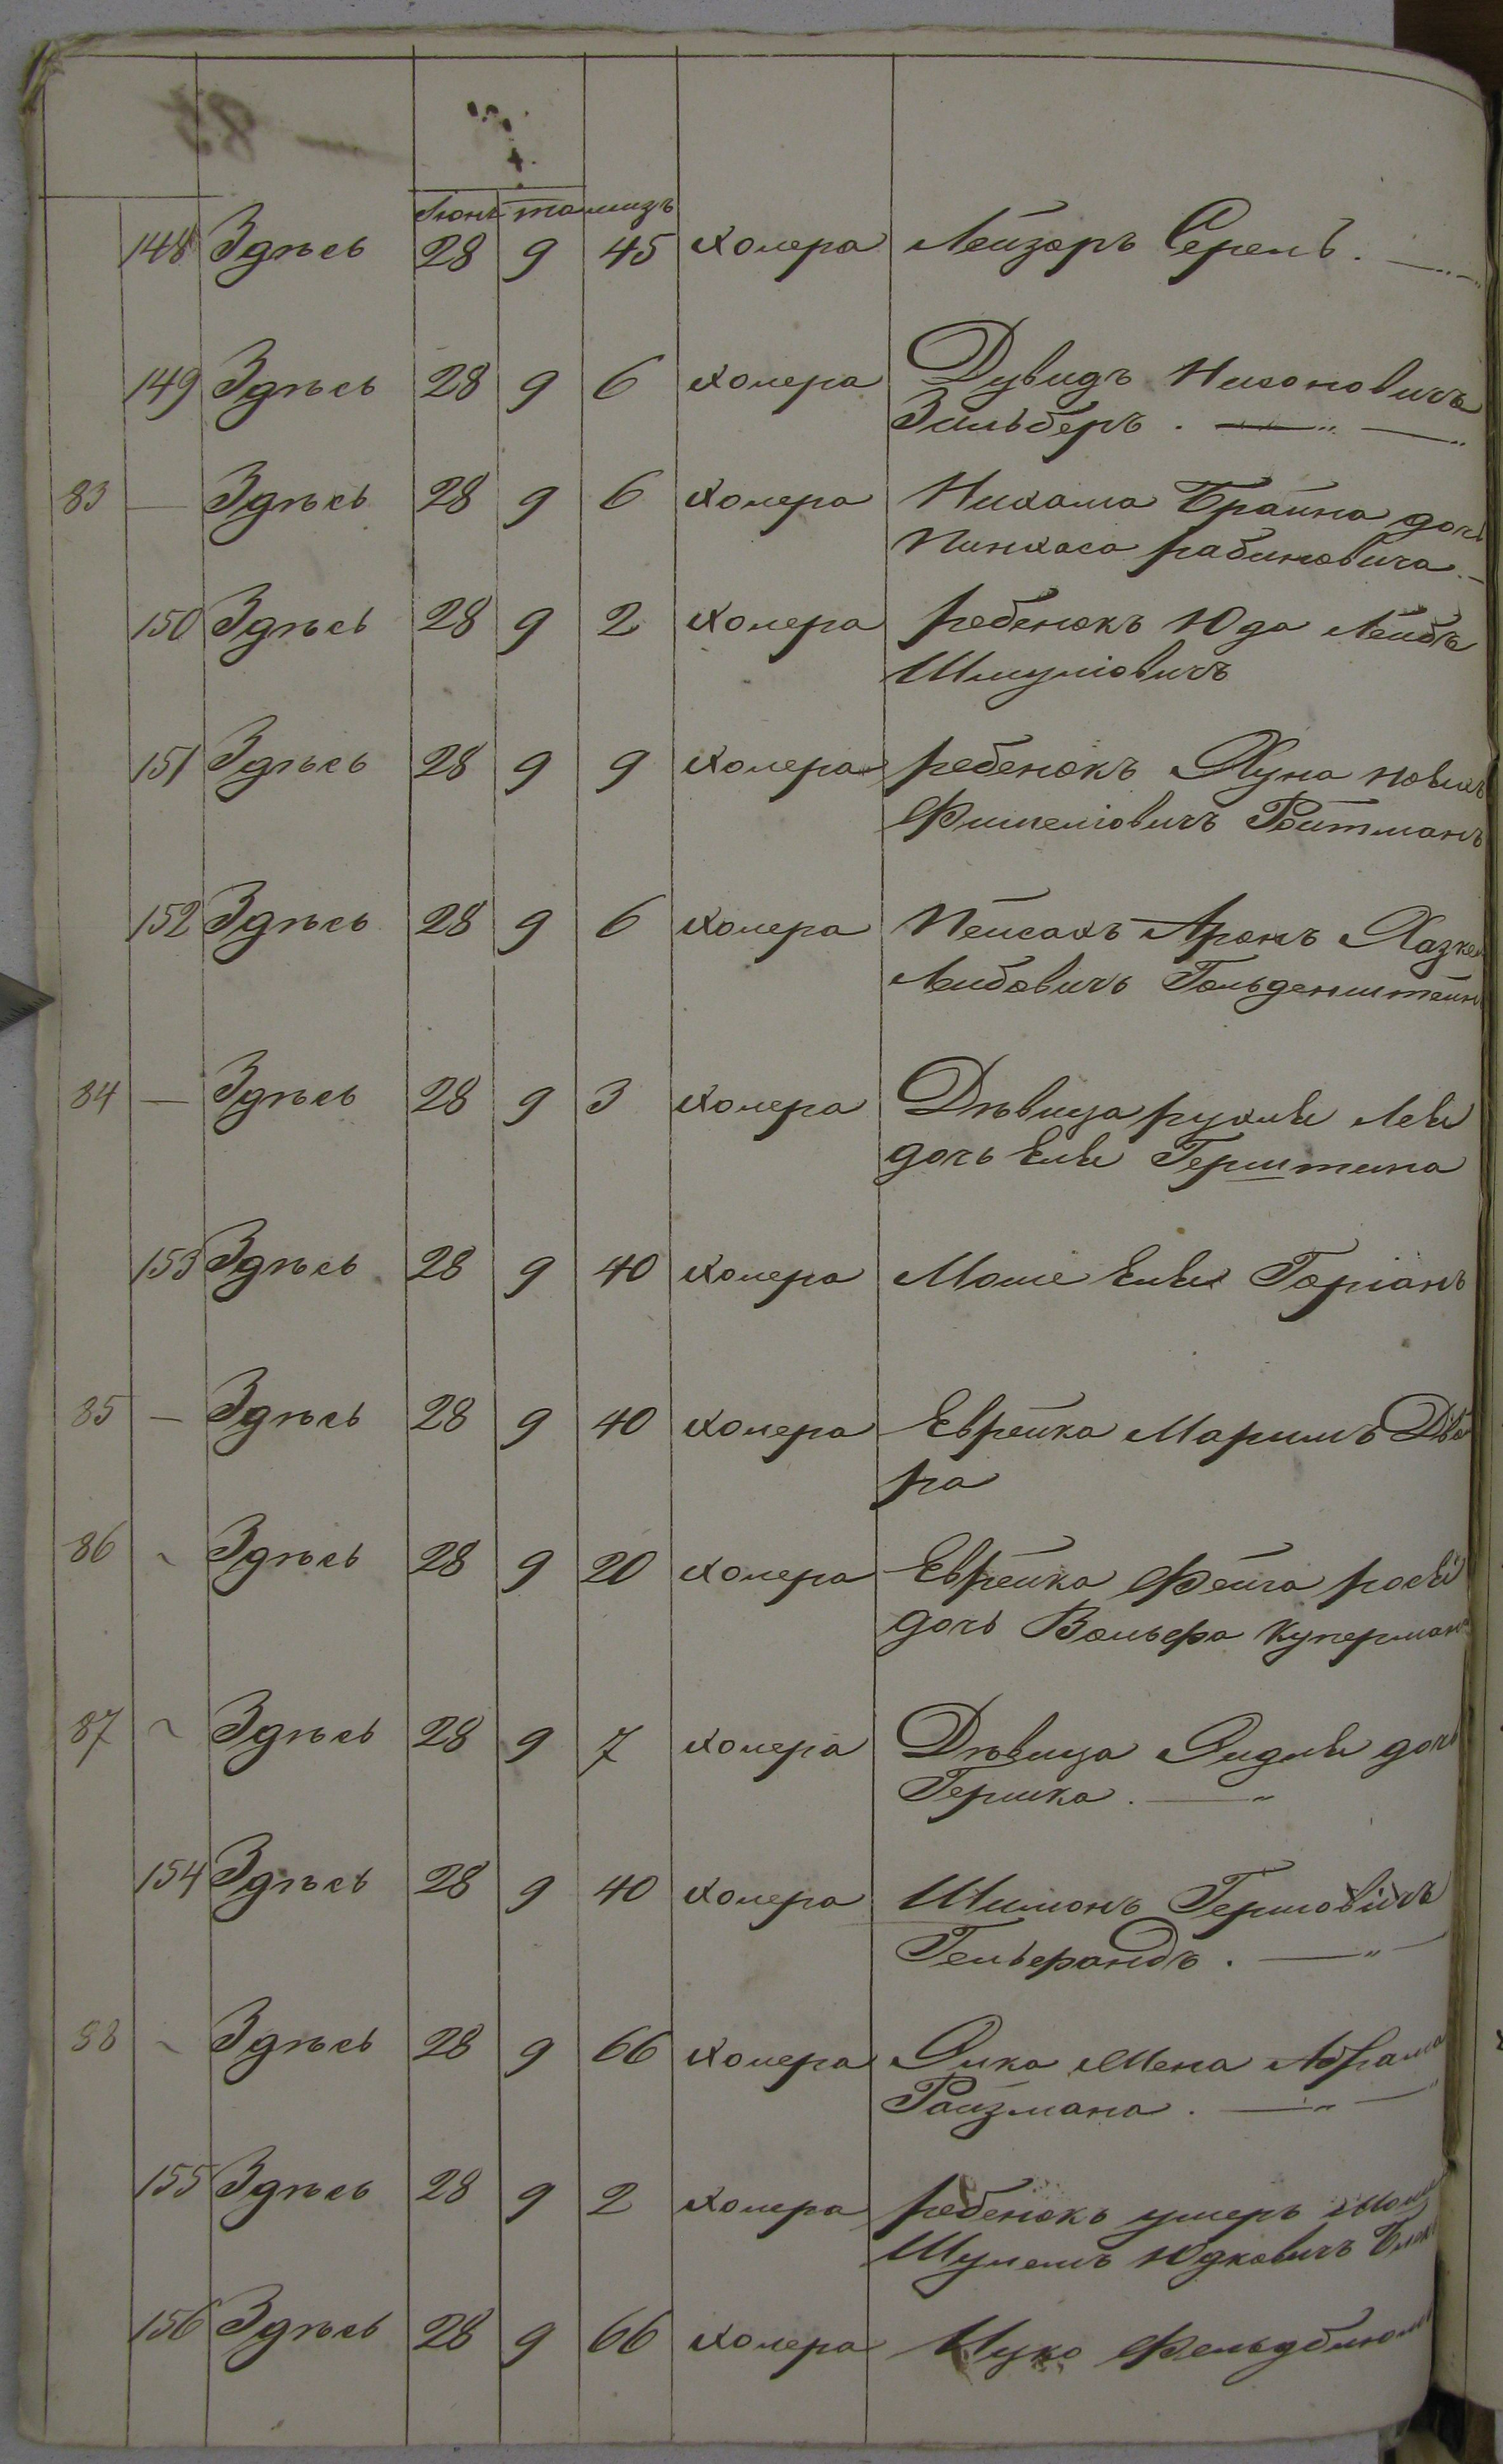 Іюнь тамизъ
148 Здѣсь 28 9 45 холера Лейзоръ Серенъ.
149 Здѣсь 28 9 6 холера Дувидъ Нисоновичъ
Зильберъ.
83 — Здѣсь 28 9 6 холера Нихама Брайна дочь
Пинхаса рабиновича.
150 Здѣсь 28 9 2 холера ребенокъ Юда Лейбъ
Шмуліовичъ
151 Здѣсь 28 9 9 холера ребенокъ Хуна
Фишеліовичъ Ройтманъ
152 Здѣсь 28 9 6 холера Пейсахъ Аронъ
Лейбовичъ Гольденштейн
84 — Здѣсь 28 9 3 холера Дѣвица рухля Лея
дочь Еля Герштина
153 Здѣсь 28 9 40 холера Моше Еля Горіанъ
85 — Здѣсь 28 9 40 холера Еврейка Маримъ Дво
ра
86 ~ Здѣсь 28 9 20 холера Еврейка Фейга рося
дочь Вольфа Куперман
87 ~ Здѣсь 28 9 7 холера Дѣвица дочь
Гершка.
154 Здѣсь 28 9 40 холера Шимонъ Гершовичъ
Гельфандъ.
88 ~ Здѣсь 28 9 66 холера Мена Абрама
Ройзмана.
155 Здѣсь 28 9 2 холера ребенокъ умеръ
Шулемъ Юдковичъ
156 Здѣсь 28 9 66 холера Ицко Фельдблюм